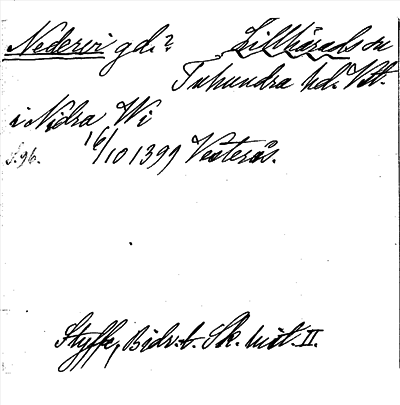 Nedervi gd.? Lillhärads sn
Tuhundra hd. Vtl.
i Nidra Wi
s. 96. 16/10 1399 Västerås.
Styffe, Bidr. t. Sk. hist. II.